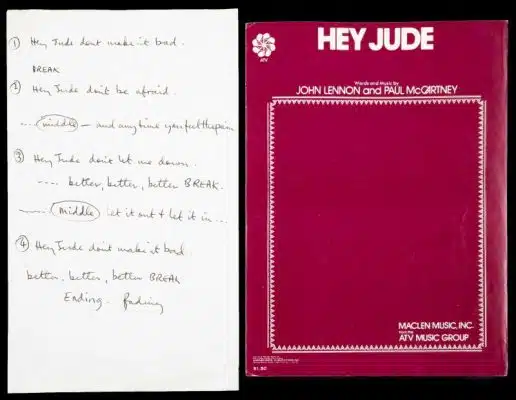 ① Hey Jude dont make it bad.
BREAK
② Hey Jude don't be afraid.
.... middle — and anytime you feel the pain
③ Hey Jude don't let me down.
.... better, better, better BREAK.
middle let it out & let it in ...
④ Hey Jude dont make it bad.
better, better, better BREAK
Ending. fading
ATV
HEY JUDE
Words and Music by
JOHN LENNON and PAUL McCARTNEY
MACLEN MUSIC, INC.
ATV MUSIC GROUP
$1.50